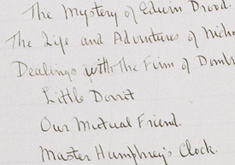 The Mystery of Edwin Drood.
The Life and Adventures of Nicho
Dealings with The Firm of Domb
Little Dorrit
Our Mutual Friend.
Master Humphrey's Clock.